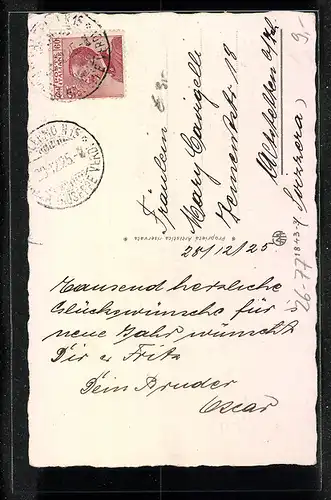 Fräulein
Mary Canigelli
Zementstr 18
Altstetten a/Z.
(Svizzera)
* Proprietà Artistica riservata *
28/12/25
Tausend herzliche
Glückwünsche für's
neue Jahr wünscht
Dir u Fritz
Dein Bruder
Oscar
9.-
26-77
1843-4